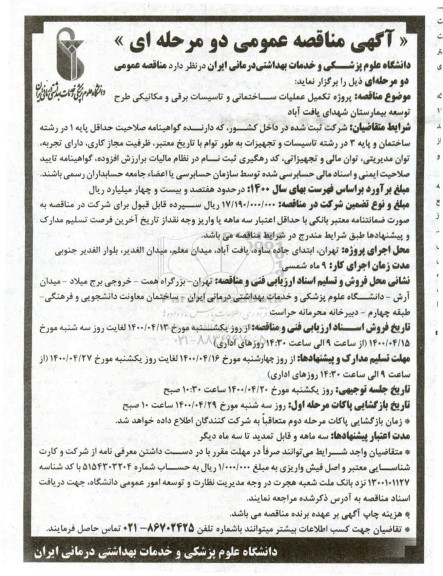 « آگهی مناقصه عمومی دو مرحله ای »
دانشگاه علوم پزشکی و خدمات بهداشتی درمانی ایران درنظر دارد مناقصه عمومی
دو مرحله‌ای ذیل را برگزار نماید:
موضوع مناقصه: پروژه تکمیل عملیات ساختمانی و تاسیسات برقی و مکانیکی طرح
توسعه بیمارستان شهدای یافت آباد
شرایط متقاضیان: شرکت ثبت شده در داخل کشور، که دارنده گواهینامه صلاحیت حداقل پایه ۱ در رشته
ساختمان و پایه ۳ در رشته تاسیسات و تجهیزات به طور توام با تاریخ معتبر، ظرفیت مجاز کاری، دارای تجربه،
توان مدیریتی، توان مالی و تجهیزاتی، کد رهگیری ثبت نام در نظام مالیات برارزش افزوده، گواهینامه تایید
صلاحیت ایمنی و اسناد مالی حسابرسی شده توسط سازمان حسابرسی یا اعضاء جامعه حسابداران رسمی باشند.
مبلغ برآورد براساس فهرست بهای سال ۱۴۰۰: درحدود هفتصد و بیست و چهار میلیارد ریال
مبلغ و نوع تضمین شرکت در مناقصه: ۱۷/۱۹۰/۰۰۰/۰۰۰ ریال سپرده قابل قبول برای شرکت در مناقصه به
صورت ضمانتنامه معتبر بانکی با حداقل اعتبار سه ماهه یا واریز وجه نقد از تاریخ آخرین فرصت تسلیم مدارک
و پیشنهادها طبق شرایط مندرج در شرایط مناقصه می باشد.
محل اجرای پروژه: تهران، ابتدای جاده ساوه، یافت آباد، میدان معلم، میدان الغدیر، بلوار الغدیر جنوبی
مدت زمان اجرای کار: ۹ ماه شمسی
نشانی محل فروش و تسلیم اسناد ارزیابی فنی و مناقصه: تهران- بزرگراه همت - خروجی برج میلاد - میدان
آرش - دانشگاه علوم پزشکی و خدمات بهداشتی درمانی ایران - ساختمان معاونت دانشجویی و فرهنگی-
طبقه چهارم - دبیرخانه محرمانه حراست
تاریخ فروش اسناد ارزیابی فنی و مناقصه: از روز یکشنبه مورخ ۱۴۰۰/۰۴/۱۳ لغایت روز سه شنبه مورخ
۱۴۰۰/۰۴/۱۵ (از ساعت ۹ الی ساعت ۱۴:۳۰ روزهای اداری)
مهلت تسلیم مدارک و پیشنهادها: از روز چهارشنبه مورخ ۱۴۰۰/۰۴/۱۶ لغایت روز یکشنبه مورخ ۱۴۰۰/۰۴/۲۷ (از
ساعت ۹ الی ساعت ۱۴:۳۰ روزهای اداری)
تاریخ جلسه توجیهی: روز یکشنبه مورخ ۱۴۰۰/۰۴/۲۰ ساعت ۱۰:۳۰ صبح
تاریخ بازگشایی پاکات مرحله اول: روز سه شنبه مورخ ۱۴۰۰/۰۴/۲۹ ساعت ۱۰ صبح
* زمان بازگشایی پاکات مرحله دوم متعاقباً به شرکت کنندگان اطلاع داده خواهد شد.
مدت اعتبار پیشنهادها: سه ماهه و قابل تمدید تا سه ماه دیگر
* متقاضیان واجد شرایط می‌توانند صرفاً در مهلت مقرر با در دست داشتن معرفی نامه از شرکت و کارت
شناسایی معتبر و اصل فیش واریزی به مبلغ ۱/۰۰۰/۰۰۰ ریال به حساب شماره ۵۱۵۴۳۰۳۲۰۴ با کد شناسه
۱۳۰۰۱۰۱۱۲۷ نزد بانک ملت شعبه هجرت در وجه مدیریت نظارت و توسعه امور عمومی دانشگاه، جهت دریافت
اسناد مناقصه به آدرس ذکرشده مراجعه نمایند.
* هزینه چاپ آگهی بر عهده برنده مناقصه می باشد.
* تقاضیان جهت کسب اطلاعات بیشتر میتوانند باشماره تلفن ۸۶۷۰۲۴۲۵-۰۲۱ تماس حاصل فرمایند.
دانشگاه علوم پزشکی و خدمات بهداشتی درمانی ایران